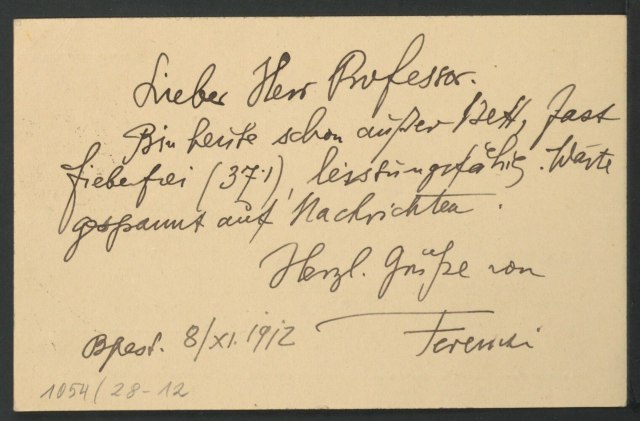 Lieber Herr Professor.
Bin heute schon außer Bett, fast
fieberfrei (37·1), leistungsfähig. Warte
gespannt auf Nachrichten.
Herzl. Grüße von
Ferenczi
Bpest. 8/XI. 1912
1054/28-12